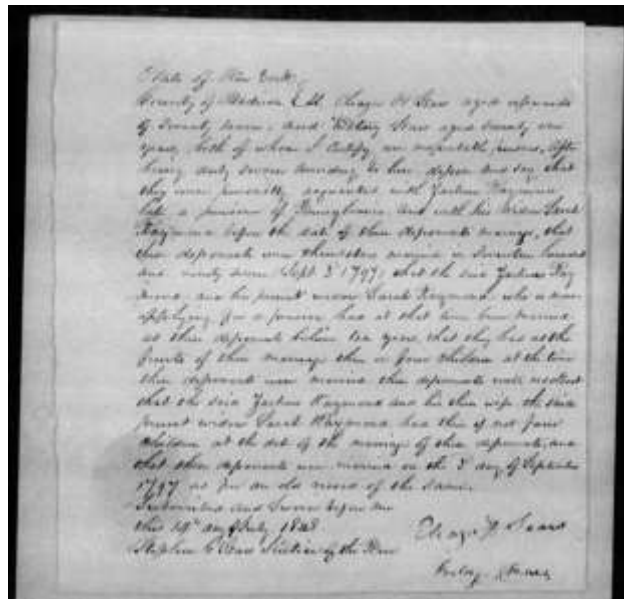 State of New York
County of Madison } SS. Eleazer N Sears aged upwards
of Seventy seven, and Sears aged seventy
years, both of whom I Certify, are respectable persons, after
being duly Sworn According to law depose and say that
they were personally acquainted with Raymond
late a pensioner of Pennsylvania and with his widow Sarah
Raymond before the date of their deponents marriage, that
these deponents were themselves married in Seventeen hundred
and ninety seven (Sept 3 1797) that the said Ray
mond, and his present widow Sarah Raymond, who is now
applying for a pension had at that time been married
as these deponents believe ten years, that they had as the
fruits of their marriage three or four children at the time
these deponents were married these deponents well recollect
that the said Raymond and his then wife the said
present widow Sarah Raymond had three if not four
children at the date of the marriage of these deponents, and
that these deponents were married on the 3 day of September
1797 as per an old record of the same.
Subscribed and Sworn before me
this 14th day of July 1848
Stephen G Justice of the Peace
Sears
Sears